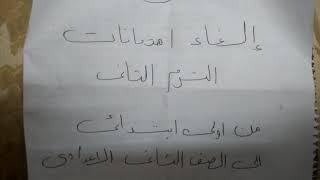 إلغاء امتحانات
الترم الثانى
من اولى ابتدائى
الى الصف الثانى الاعدادى